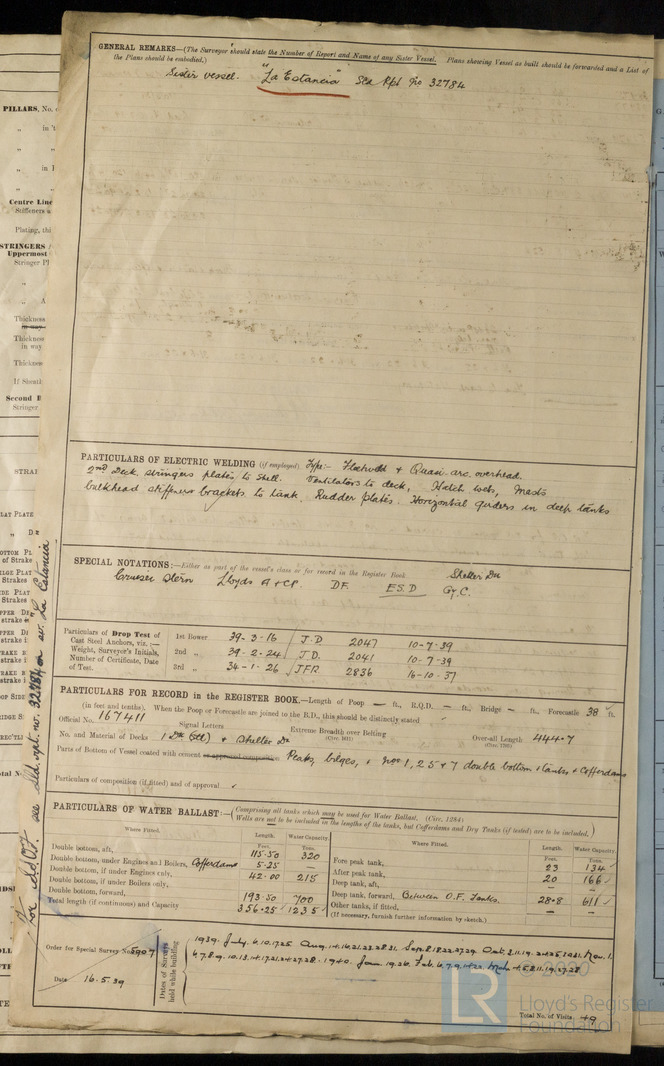 GENERAL REMARKS—(The Surveyor should state the Number of Report and Name of any Sister Vessel. Plans showing Vessel as built should be forwarded and a List of
the Plans should be embodied.)
Sister vessel. "La Estancia" See Rpt No 32784
PARTICULARS OF ELECTRIC WELDING (if employed) Type:- Fleetweld + Quasi arc. overhead.
2nd Deck stringers plates to shell. Ventilators to deck, Hatch webs, Masts
bulkhead stiffeners brackets to tank. Rudder plates. Horizontal girders in deep tanks
SPECIAL NOTATIONS:—Either as part of the vessel's class or for record in the Register Book
Cruiser Stern Lloyds A & CP. DF. ESD Gy.C. Shelter Dk
Particulars of Drop Test of
Cast Steel Anchors, viz. :—
Weight, Surveyor's Initials,
Number of Certificate, Date
of Test.
1st Bower 39-3-16 J.D 2047 10-7-39
2nd „ 39-2-24 J.D. 2041 10-7-39
3rd „ 34-1-26 JFR. 2836 16-10-37
PARTICULARS FOR RECORD in the REGISTER BOOK.—Length of Poop — ft., R.Q.D. — ft., Bridge — ft., Forecastle 38 ft.
(in feet and tenths). When the Poop or Forecastle are joined to the B.D., this should be distinctly stated
Official No. 167411 Signal Letters Extreme Breadth over Belting Over-all Length 444.7
(Circ. 1611) (Circ. 1703)
No. and Material of Decks 1 Dk (Stl) + Shelter Dk
Parts of Bottom of Vessel coated with cement or approved composition Peaks, bilges, + Nos 1, 2 5 & 7 double bottom tanks + Cofferdams
Particulars of composition (if fitted) and of approval
PARTICULARS OF WATER BALLAST:—(Comprising all tanks which may be used for Water Ballast. (Circ. 1284)
Wells are not to be included in the lengths of the tanks, but Cofferdams and Dry Tanks (if tested) are to be included.)
Where Fitted. Length. Water Capacity.
Feet. Tons.
Double bottom, aft, 115.50 320
Double bottom, under Engines and Boilers, Cofferdams 5.25 —
Double bottom, if under Engines only, 42.00 215
Double bottom, if under Boilers only,
Double bottom, forward, 193.50 700
Total length (if continuous) and Capacity 356.25 1235
Where Fitted. Length. Water Capacity.
Feet. Tons.
Fore peak tank, 23 134
After peak tank, 20 166
Deep tank, aft, — —
Deep tank, forward, Between O.F. Tanks. 28.8 611
Other tanks, if fitted, — —
(If necessary, furnish further information by sketch.)
Order for Special Survey No. 5907
Date 16.5.39
Dates of Surveys
held while building
Total No. of Visits 49
For Mid. Sec. see Sld. rpt. no. 32784 on sv. La Estancia
PILLARS, No.
Centre Line
Stiffeners a
Plating, thi
STRINGERS
Uppermost
Stringer Pl
Thickness
in way
Thickness
in way
Thickness
If Should
Second D
Stringer
© 2020
LR
Lloyd's Register
Foundation